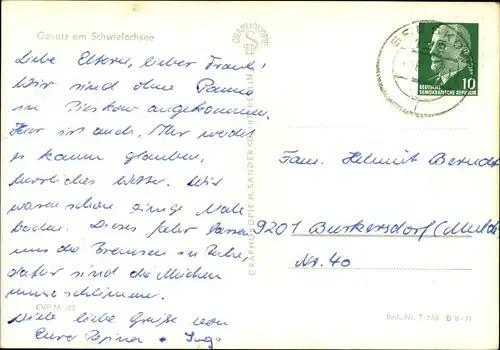 Goyatz am Schwielochsee
Liebe Eltern, lieber Frank!
Wir sind ohne Panne
in Pieskow angekommen.
Hier ist auch, Ihr werdet
es kaum glauben,
herrliches Wetter. Wir
waren schon einige Male
baden. Dieses Jahr lassen
uns die Bremsen in Ruhe,
dafür sind die Mücken
umso schlimmer.
Viele liebe Grüße von
Eurer Regina + Ingo
EVP M -,25
GRAPHOKOPIE H. SANDER KG BERLIN
10
DEUTSCHE
DEMOKRATISCHE REPUBLIK
Fam. Helmut Berndt
9201 Burkersdorf (Mulde
Nr. 40
Best.-Nr. 1 556 B 8/71